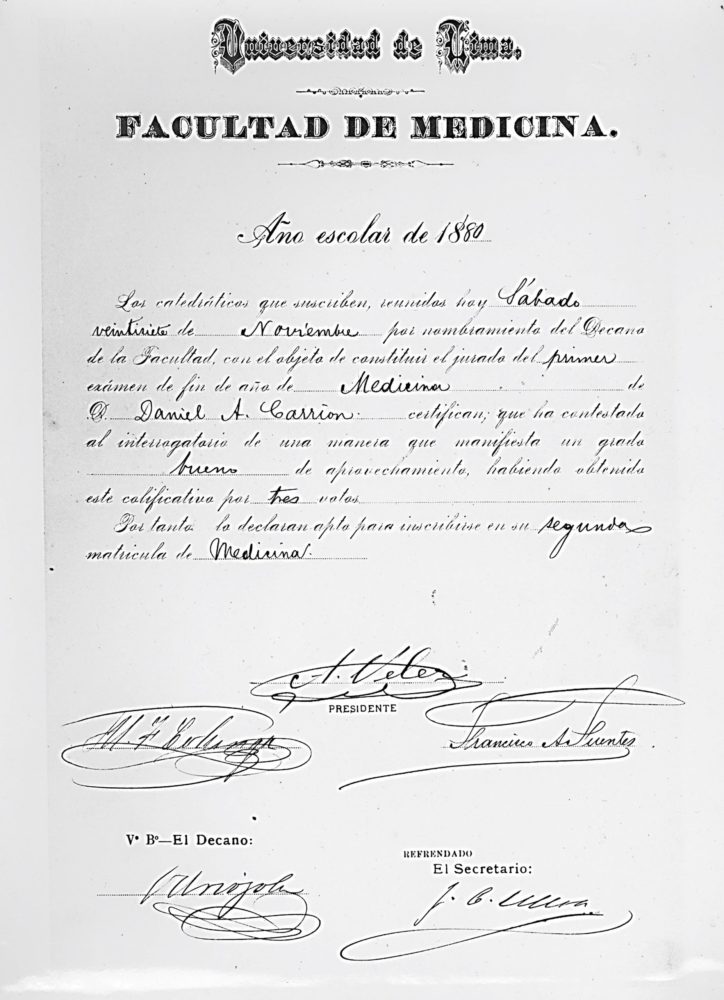 Universidad de Lima.
FACULTAD DE MEDICINA.
Año escolar de 1880
Los catedráticos que suscriben, reunidos hoy Sábado
veintisiete de Noviembre por nombramiento del Decano
de la Facultad, con el objeto de constituir el jurado del primer
exámen de fin de año de Medicina de
D. Daniel A. Carrion. certifican; que ha contestado
al interrogatorio de una manera que manifiesta un grado
bueno de aprovechamiento, habiendo obtenido
este calificativo por tres votos
Por tanto lo declaran apto para inscribirse en su segunda
matrícula de Medicina.
A. Velez
PRESIDENTE
M. F.
Francisco A. Fuentes
Vº Bº—El Decano:
REFRENDADO
El Secretario: